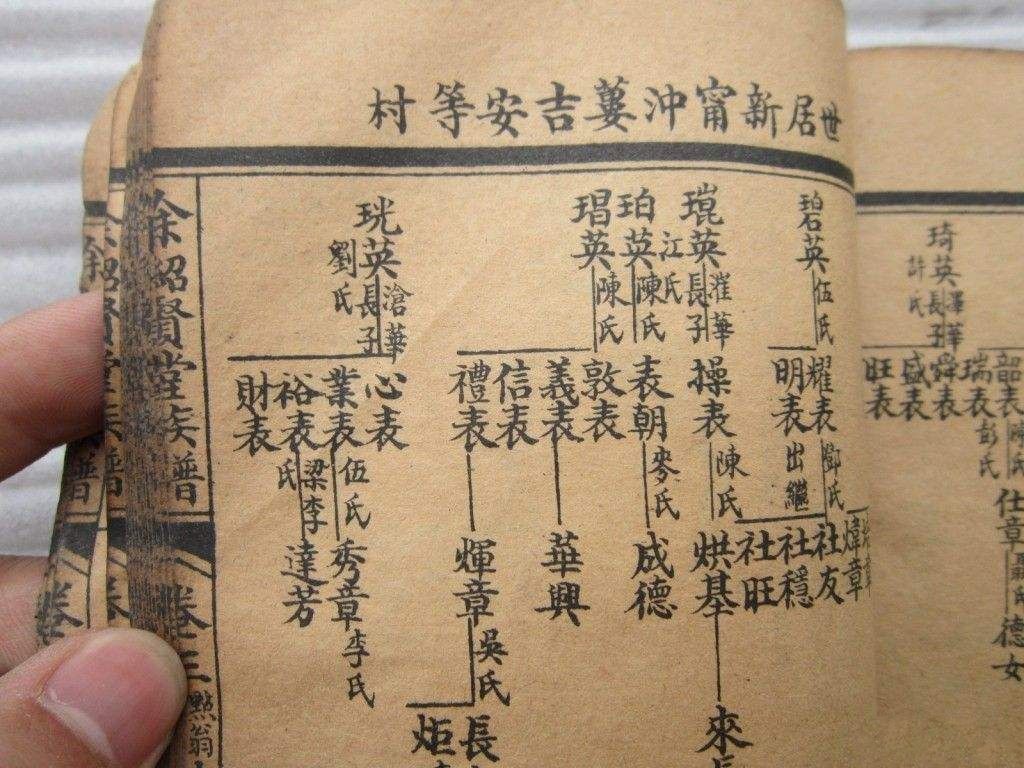 世居新甯沖蔞吉安等村
琦英
澤華長子
許氏
韶表
陳氏
仕章
德女
瑞表
彭氏
舜表
盛表
旺表
煒章
珀英
伍氏
耀表
鄧氏
社友
明表
出繼
社穩
社旺
琨英
漼華長子
江氏
操表
陳氏
烘基
來
珀英
陳氏
表朝
麥氏
成德
琩英
陳氏
敦表
義表
華興
信表
禮表
輝章
吳氏
長
炬
珖英
滄華長子
劉氏
心表
業表
伍氏
秀章
李氏
裕表
梁李氏
達芳
財表
余紹賢堂族譜
卷三